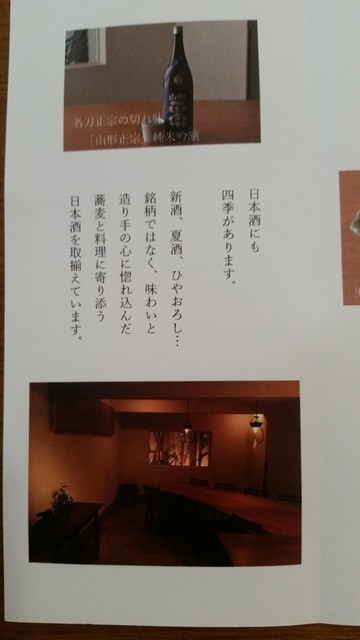 名刀正宗の切れ味
「山形正宗 純米吟醸
日本酒にも
四季があります。
新酒、夏酒、ひやおろし…
銘柄ではなく、味わいと
造り手の心に惚れ込んだ
蕎麦と料理に寄り添う
日本酒を取揃えています。